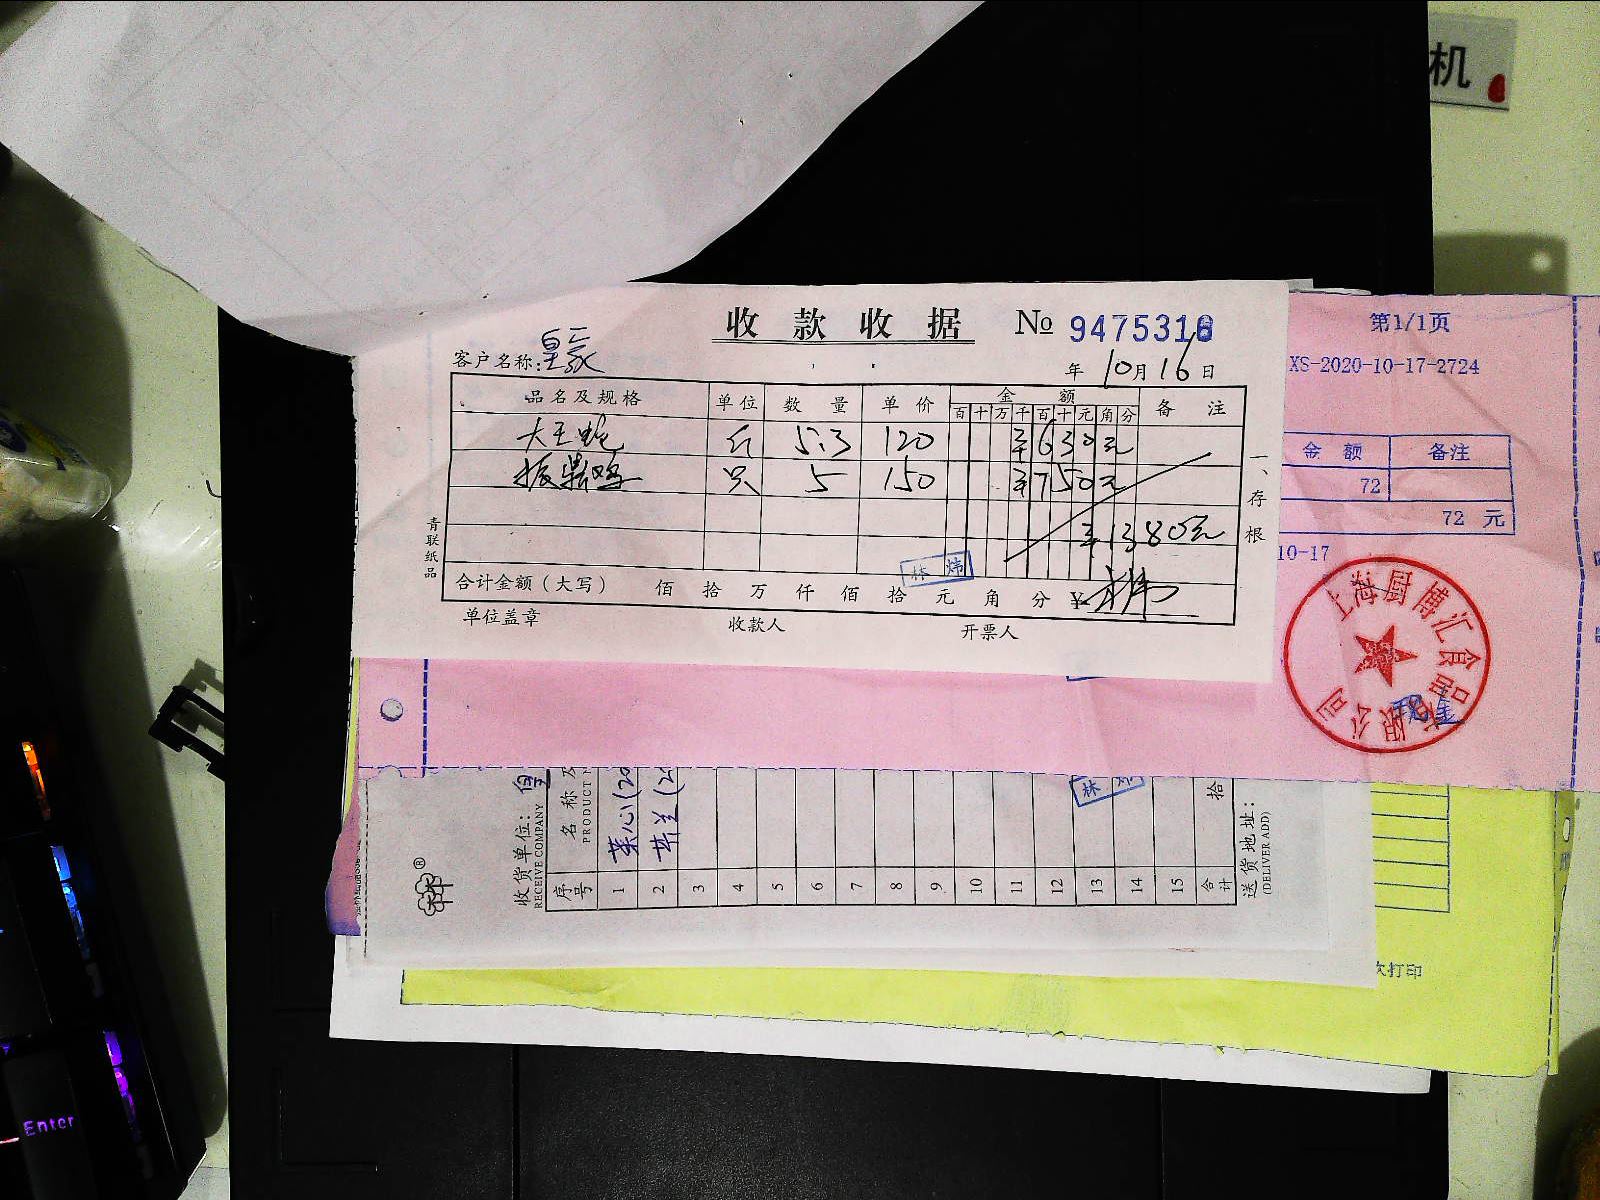 机
收款收据 № 9475310
第1/1页
客户名称:皇家
年 10月16日
XS-2020-10-17-2724
品名及规格 单位 数量 单价 金额 备注
百 十 万 千 百 十 元 角 分
大王蛇 斤 5.3 120 ¥630元
振鼎鸡 只 5 150 ¥750元
¥1380元
一、存根
青联纸品
合计金额(大写) 佰 拾 万 仟 佰 拾 元 角 分 ¥
林 炜
单位盖章 收款人 开票人
金额 备注
72
72 元
10-17
上海厨博汇食品有限公司
现金
收货单位:
RECEIVE COMPANY
序号 名称及
PRODUCT N
1 菜心(20
2 芥兰(2
3
4
5
6
7
8
9
10
11
12
13
14
15
合计 拾
送货地址:
(DELIVER ADD)
林 炜
次打印
Enter